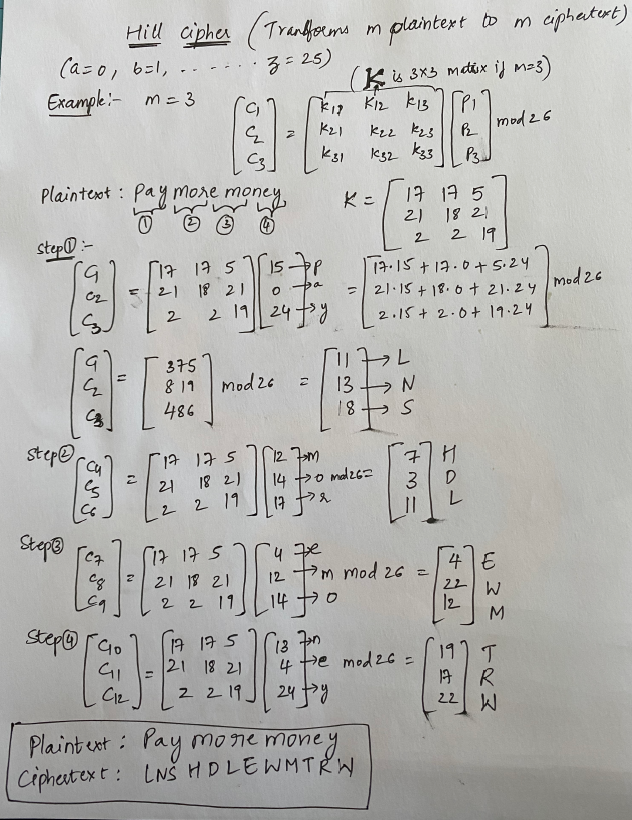 Hill cipher (Transforms m plaintext to m ciphertext)
(a=0, b=1, ........ z=25)
(K is 3x3 matrix if m=3)
Example:- m=3 [C1 C2 C3] = [K11 K12 K13 K21 K22 K23 K31 K32 K33] [P1 P2 P3] mod 26
Plaintext: Pay more money K = [17 17 5 21 18 21 2 2 19]
① ② ③ ④
Step①:-
[C1 C2 C3] = [17 17 5 21 18 21 2 2 19] [15→p 0→a 24→y] = [17.15+17.0+5.24 21.15+18.0+21.24 2.15+2.0+19.24] mod 26
[C1 C2 C3] = [375 819 486] mod 26 = [11→L 13→N 18→S]
Step② [C4 C5 C6] = [17 17 5 21 18 21 2 2 19] [12→m 14→o 17→r] mod 26= [7 3 11] H D L
Step③ [C7 C8 C9] = [17 17 5 21 18 21 2 2 19] [4→e 12→m 14→o] mod 26 = [4 22 12] E W M
Step④ [C10 C11 C12] = [17 17 5 21 18 21 2 2 19] [13→n 4→e 24→y] mod 26 = [19 17 22] T R W
Plaintext: Pay more money
Ciphertext: LNS HDLEWMTRW